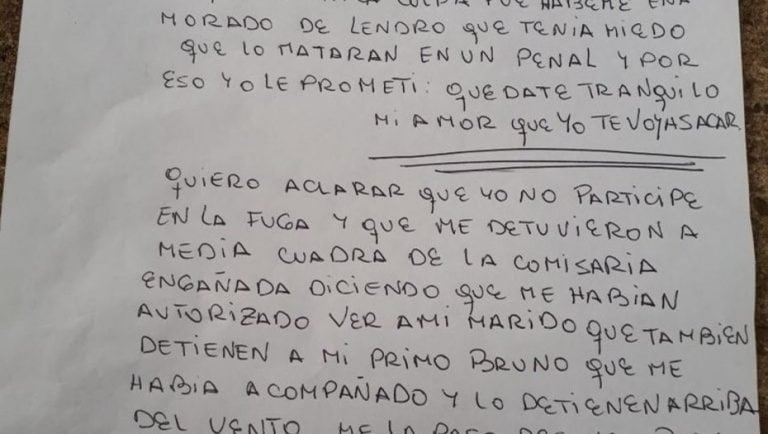 CULPA FUE HABERME ENA
MORADO DE LENDRO QUE TENIA MIEDO
QUE LO MATARAN EN UN PENAL Y POR
ESO YO LE PROMETI: QUEDATE TRANQUILO
MI AMOR QUE YO TE VOY A SACAR.
QUIERO ACLARAR QUE YO NO PARTICIPE
EN LA FUGA Y QUE ME DETUVIERON A
MEDIA CUADRA DE LA COMISARIA
ENGAÑADA DICIENDO QUE ME HABIAN
AUTORIZADO VER A MI MARIDO QUE TAMBIEN
DETIENEN A MI PRIMO BRUNO QUE ME
HABIA ACOMPAÑADO Y LO DETIENEN ARRIBA
DEL VENTO ME LA